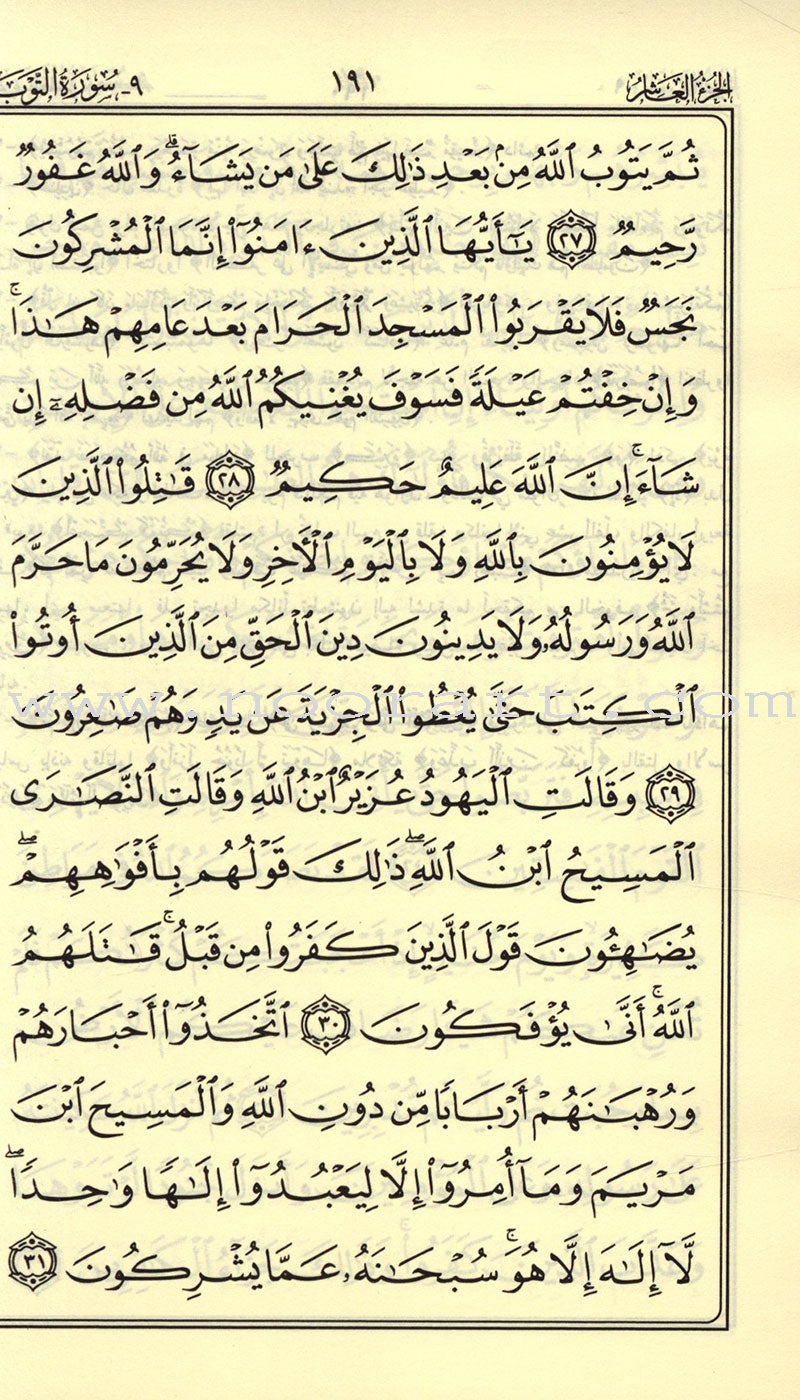 الجزء العاشر ١٩١ ٩- سورة التوب
ثُمَّ يَتُوبُ ٱللَّهُ مِنۢ بَعْدِ ذَٰلِكَ عَلَىٰ مَن يَشَآءُ ۗ وَٱللَّهُ غَفُورٌ
رَّحِيمٌ ٢٧ يَٰٓأَيُّهَا ٱلَّذِينَ ءَامَنُوٓا۟ إِنَّمَا ٱلْمُشْرِكُونَ
نَجَسٌ فَلَا يَقْرَبُوا۟ ٱلْمَسْجِدَ ٱلْحَرَامَ بَعْدَ عَامِهِمْ هَٰذَا ۚ
وَإِنْ خِفْتُمْ عَيْلَةً فَسَوْفَ يُغْنِيكُمُ ٱللَّهُ مِن فَضْلِهِۦٓ إِن
شَآءَ ۚ إِنَّ ٱللَّهَ عَلِيمٌ حَكِيمٌ ٢٨ قَٰتِلُوا۟ ٱلَّذِينَ
لَا يُؤْمِنُونَ بِٱللَّهِ وَلَا بِٱلْيَوْمِ ٱلْأَخِرِ وَلَا يُحَرِّمُونَ مَا حَرَّمَ
ٱللَّهُ وَرَسُولُهُۥ وَلَا يَدِينُونَ دِينَ ٱلْحَقِّ مِنَ ٱلَّذِينَ أُوتُوا۟
ٱلْكِتَٰبَ حَتَّىٰ يُعْطُوا۟ ٱلْجِزْيَةَ عَن يَدٍ وَهُمْ صَٰغِرُونَ
www.noorart.com
٢٩ وَقَالَتِ ٱلْيَهُودُ عُزَيْرٌ ٱبْنُ ٱللَّهِ وَقَالَتِ ٱلنَّصَٰرَى
ٱلْمَسِيحُ ٱبْنُ ٱللَّهِ ۖ ذَٰلِكَ قَوْلُهُم بِأَفْوَٰهِهِمْ ۖ
يُضَٰهِـُٔونَ قَوْلَ ٱلَّذِينَ كَفَرُوا۟ مِن قَبْلُ ۚ قَٰتَلَهُمُ
ٱللَّهُ ۚ أَنَّىٰ يُؤْفَكُونَ ٣٠ ٱتَّخَذُوٓا۟ أَحْبَارَهُمْ
وَرُهْبَٰنَهُمْ أَرْبَابًا مِّن دُونِ ٱللَّهِ وَٱلْمَسِيحَ ٱبْنَ
مَرْيَمَ وَمَآ أُمِرُوٓا۟ إِلَّا لِيَعْبُدُوٓا۟ إِلَٰهًا وَٰحِدًا ۖ
لَّآ إِلَٰهَ إِلَّا هُوَ ۚ سُبْحَٰنَهُۥ عَمَّا يُشْرِكُونَ ٣١